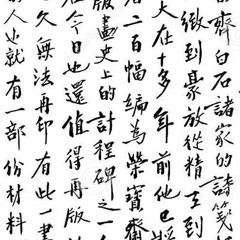 齊白石諸家的詩箋
緻到豪放從精工到
大在十多年前他已將
二百幅編為榮寶齋
版畫史上的計程碑之一
在今日也還值得再版
久無法再印有此一書
人也就有一部份材料